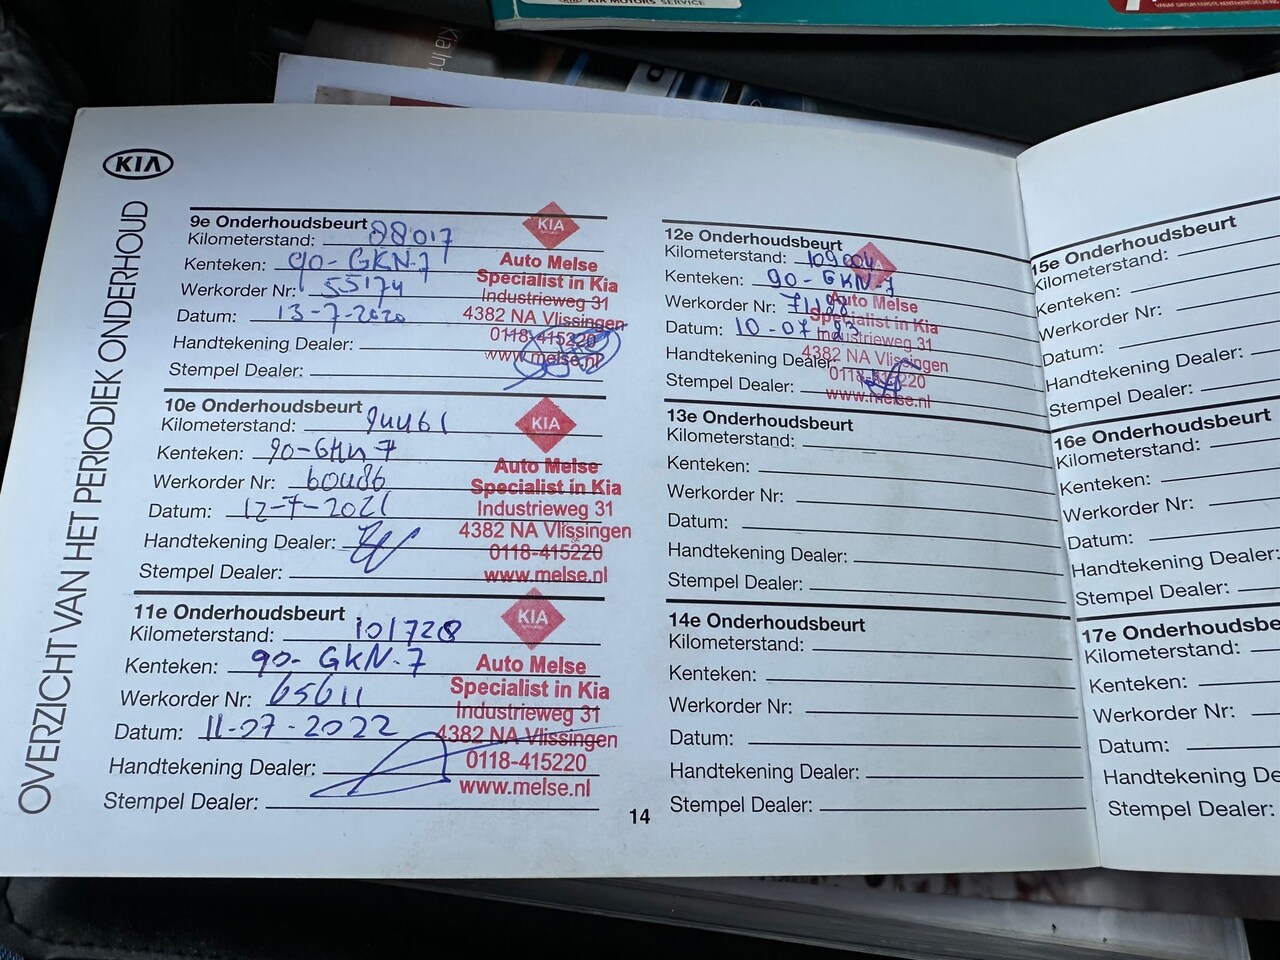 KIA MOTORS SERVICE
Kia
KIA
OVERZICHT VAN HET PERIODIEK ONDERHOUD
9e Onderhoudsbeurt
Kilometerstand: 88017
Kenteken: 90-GKN-7
Werkorder Nr: 55174
Datum: 13-7-2020
Handtekening Dealer:
Stempel Dealer:
KIA
Auto Melse
Specialist in Kia
Industrieweg 31
4382 NA Vlissingen
0118-415220
www.melse.nl
10e Onderhoudsbeurt
Kilometerstand: 94461
Kenteken: 90-GKN-7
Werkorder Nr: 60486
Datum: 12-7-2021
Handtekening Dealer:
Stempel Dealer:
KIA
Auto Melse
Specialist in Kia
Industrieweg 31
4382 NA Vlissingen
0118-415220
www.melse.nl
11e Onderhoudsbeurt
Kilometerstand: 101728
Kenteken: 90-GKN-7
Werkorder Nr: 65611
Datum: 11-07-2022
Handtekening Dealer:
Stempel Dealer:
KIA
Auto Melse
Specialist in Kia
Industrieweg 31
4382 NA Vlissingen
0118-415220
www.melse.nl
14
12e Onderhoudsbeurt
Kilometerstand: 109004
Kenteken: 90-GKN-7
Werkorder Nr:
Datum: 10-07-23
Handtekening Dealer:
Stempel Dealer:
Auto Melse
Specialist in Kia
Industrieweg 31
4382 NA Vlissingen
0118-415220
www.melse.nl
13e Onderhoudsbeurt
Kilometerstand:
Kenteken:
Werkorder Nr:
Datum:
Handtekening Dealer:
Stempel Dealer:
14e Onderhoudsbeurt
Kilometerstand:
Kenteken:
Werkorder Nr:
Datum:
Handtekening Dealer:
Stempel Dealer:
15e Onderhoudsbeurt
Kilometerstand:
Kenteken:
Werkorder Nr:
Datum:
Handtekening Dealer:
Stempel Dealer:
16e Onderhoudsbeurt
Kilometerstand:
Kenteken:
Werkorder Nr:
Datum:
Handtekening Dealer:
Stempel Dealer:
17e Onderhoudsbe
Kilometerstand:
Kenteken:
Werkorder Nr:
Datum:
Handtekening De
Stempel Dealer: